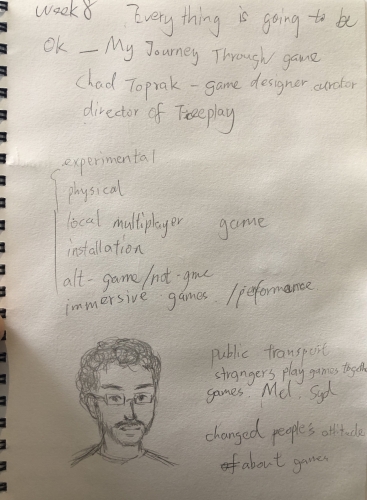 week 8 Everything is going to be
OK — My Journey Through game
Chad Toprak - game designer curator
director of Freeplay
experimental
physical
local multiplayer game
installation
alt-game/not-gme
immersive games /peformance
public transport
strangers play games togeth
games. Mel. Syd
changed people's attitude
of about games